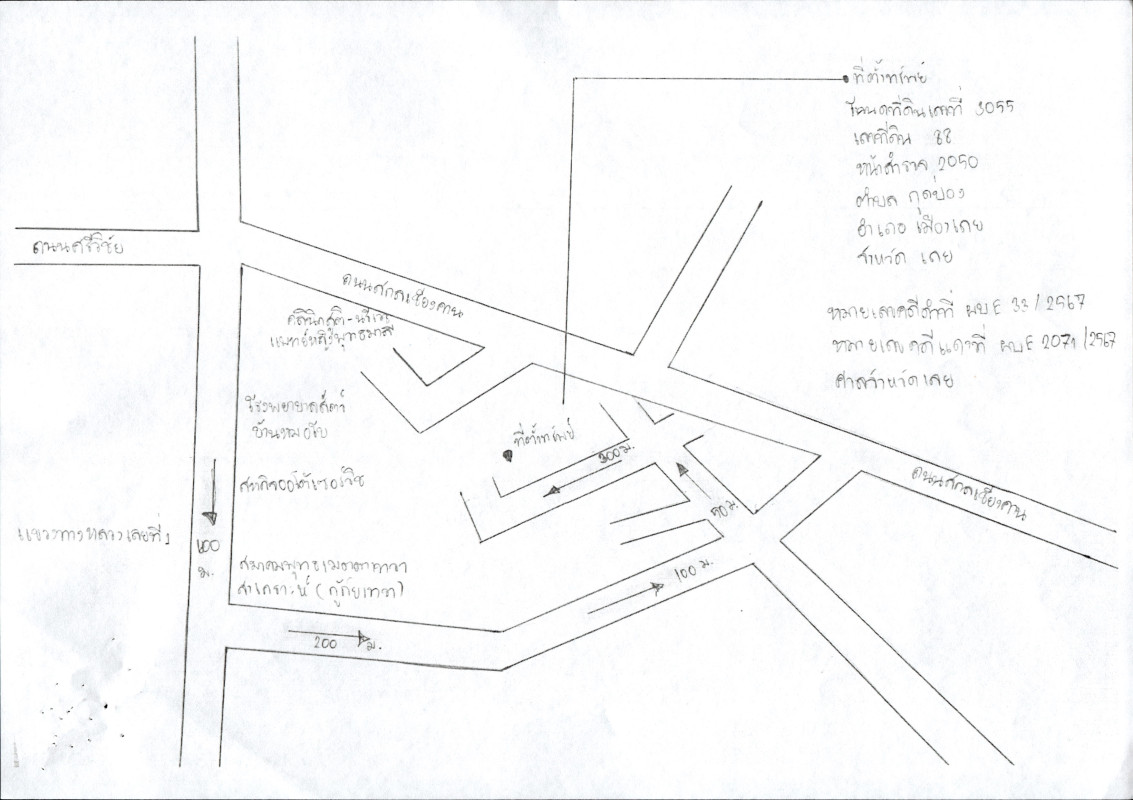 ที่ตั้งทรัพย์
โฉนดที่ดินเลขที่ 3055
เลขที่ดิน 88
หน้าสำรวจ 2050
ตำบล กุดป่อง
อำเภอ เมืองเลย
จังหวัด เลย
หมายเลขคดีดำที่ ผบE 33/2567
หมายเลขคดีแดงที่ ผบE 2071/2567
ศาลจังหวัดเลย
ถนนศรีวิชัย
ถนนสกลเชียงคาน
คลินิกสูติ-นรีเวช
แพทย์หญิงพุทธมาลี
โรงพยาบาลสัตว์
บ้านหมอโบ
ที่ตั้งทรัพย์
300 ม.
ถนนสกลเชียงคาน
50 ม.
แขวงทางหลวงเลยที่ 1
100
ม.
สมาคมพุทธเมตตาธรรม
สงเคราะห์ (กู้ภัย
100 ม.
200 ม.